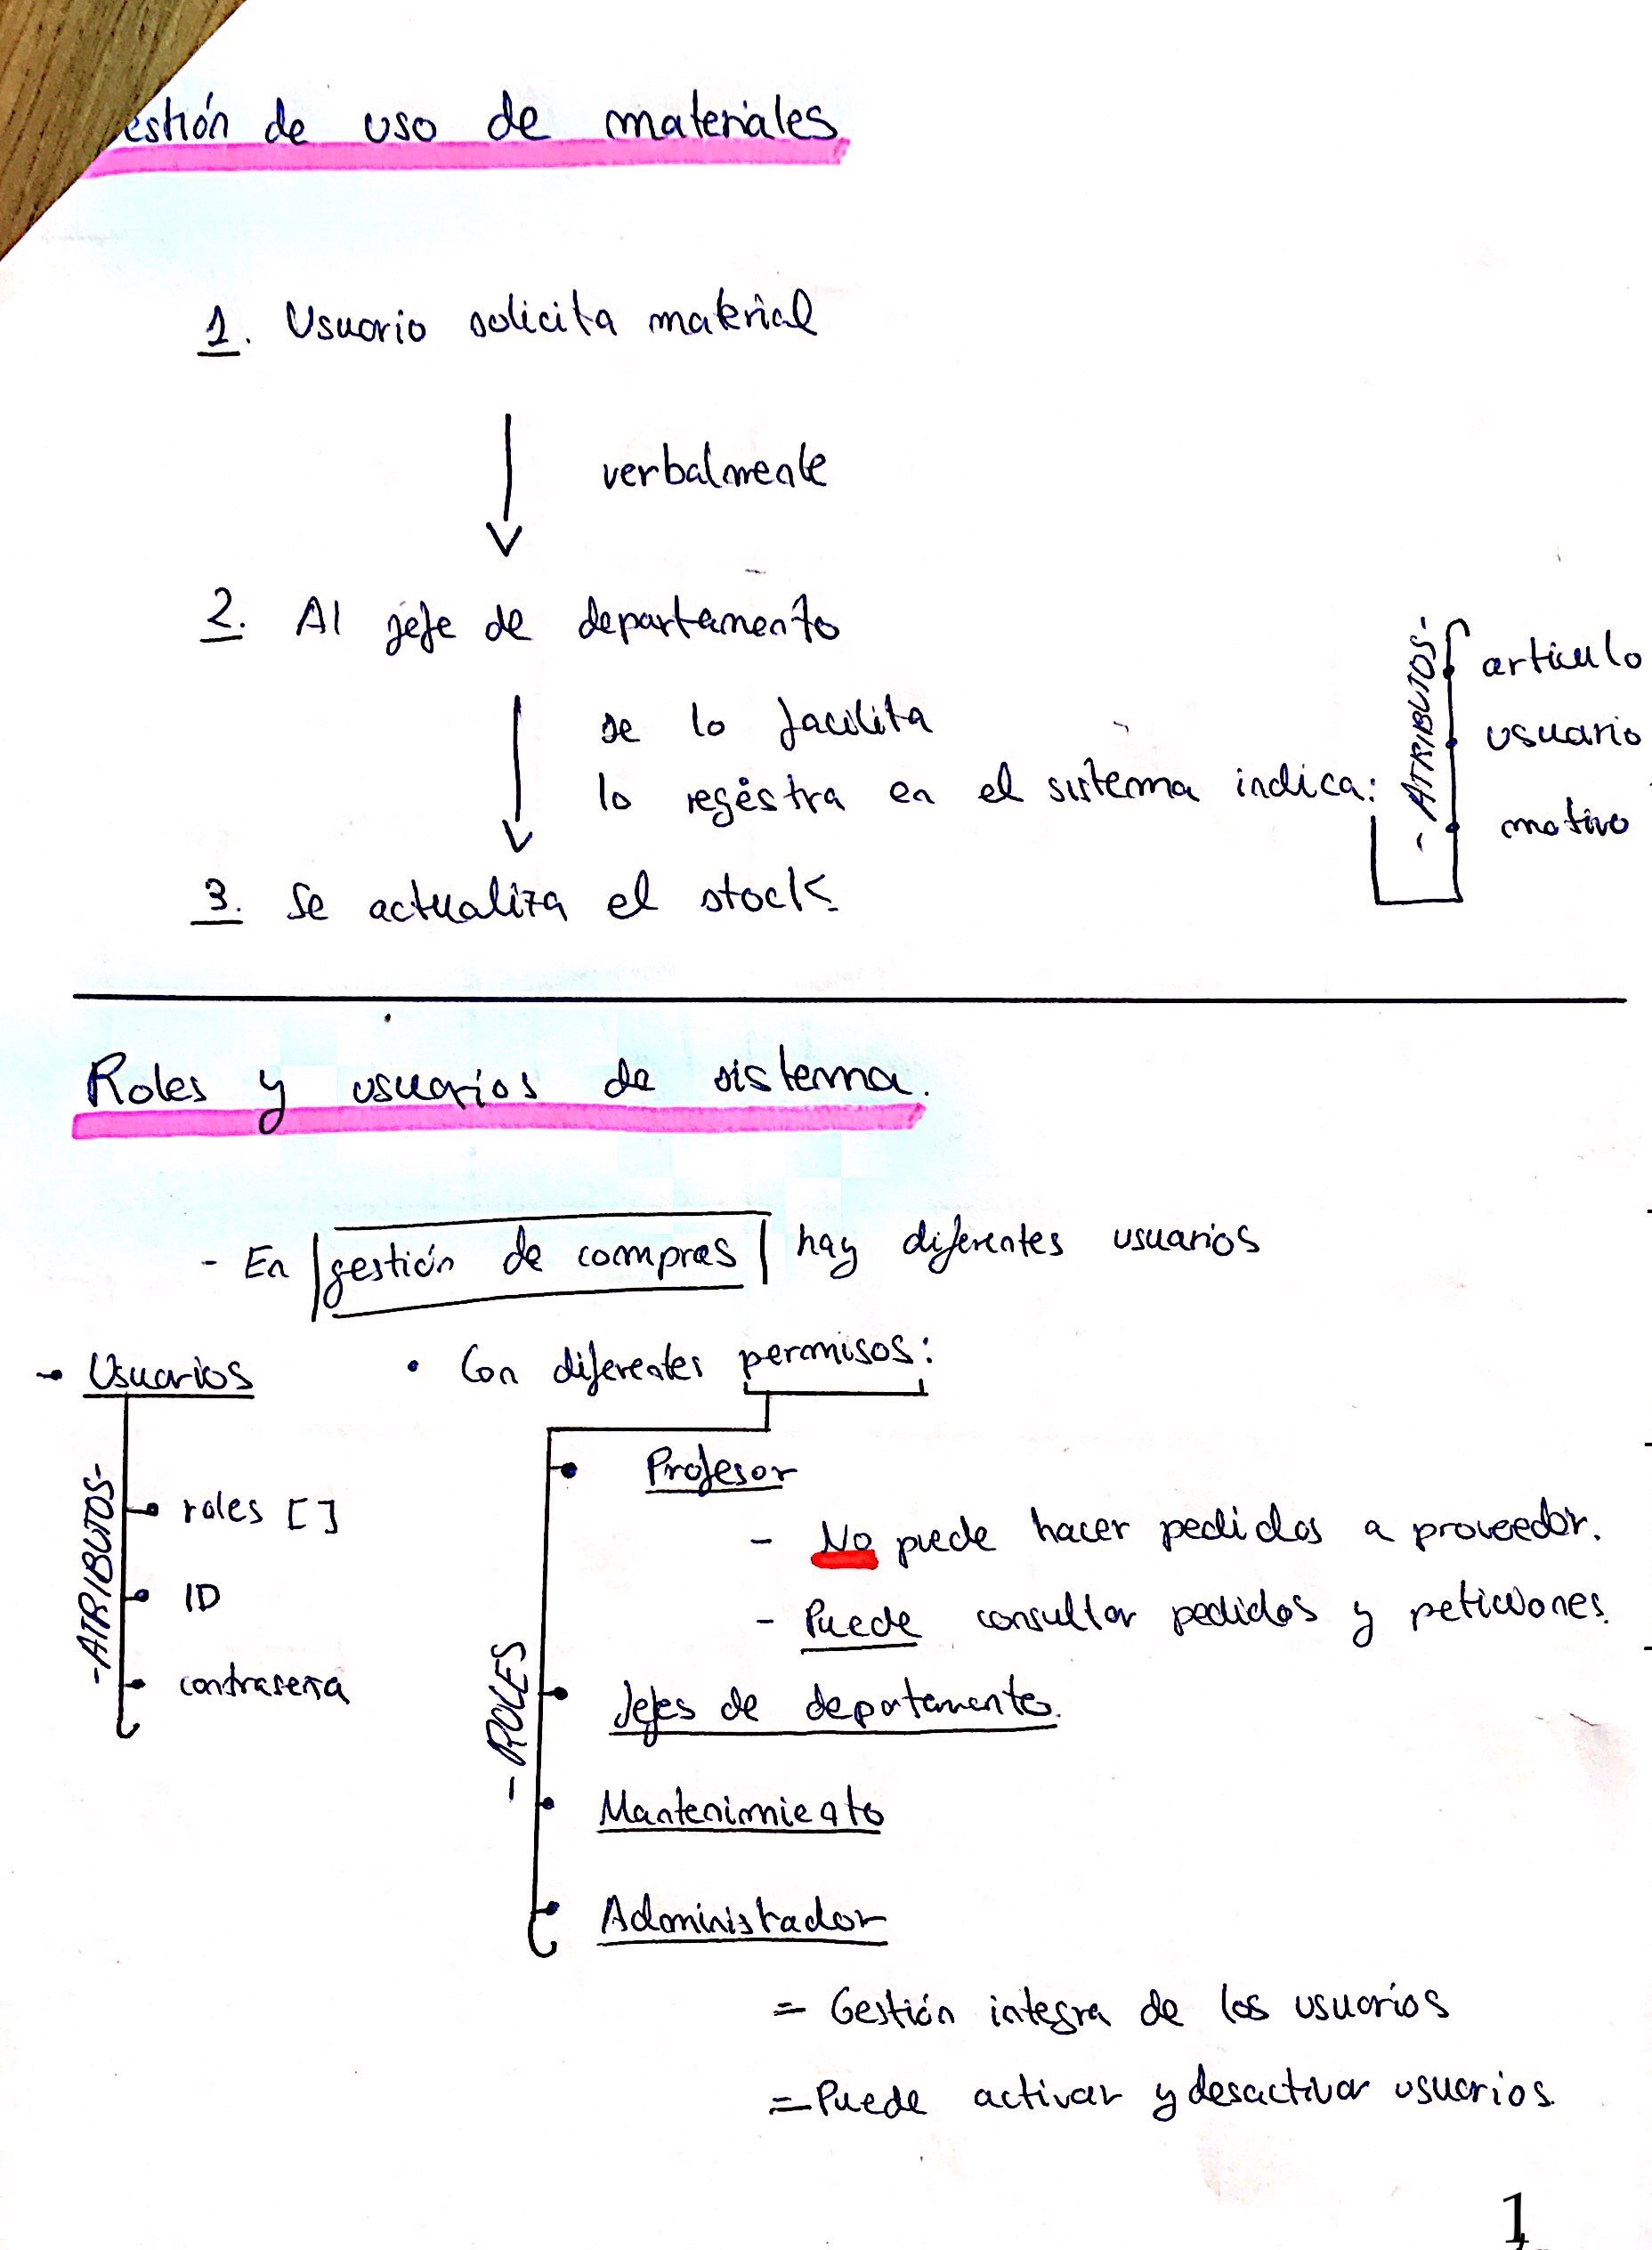 estión de uso de materiales
1. Usuario solicita material
verbalmente
2. Al jefe de departamento
se lo facilita
lo registra en el sistema indica:
- ATRIBUTOS -
articulo
usuario
motivo
3. Se actualiza el stock.
Roles y usuarios de sistema.
- En gestión de compras hay diferentes usuarios
- Usuarios
- ATRIBUTOS -
roles [ ]
ID
contraseña
• Con diferentes permisos:
- ROLES
Profesor
- No puede hacer pedidos a proveedor.
- Puede consultar pedidos y peticiones.
Jefes de departamento.
Mantenimiento
Administrador
= Gestión integra de los usuarios
= Puede activar y desactivar usuarios.
1